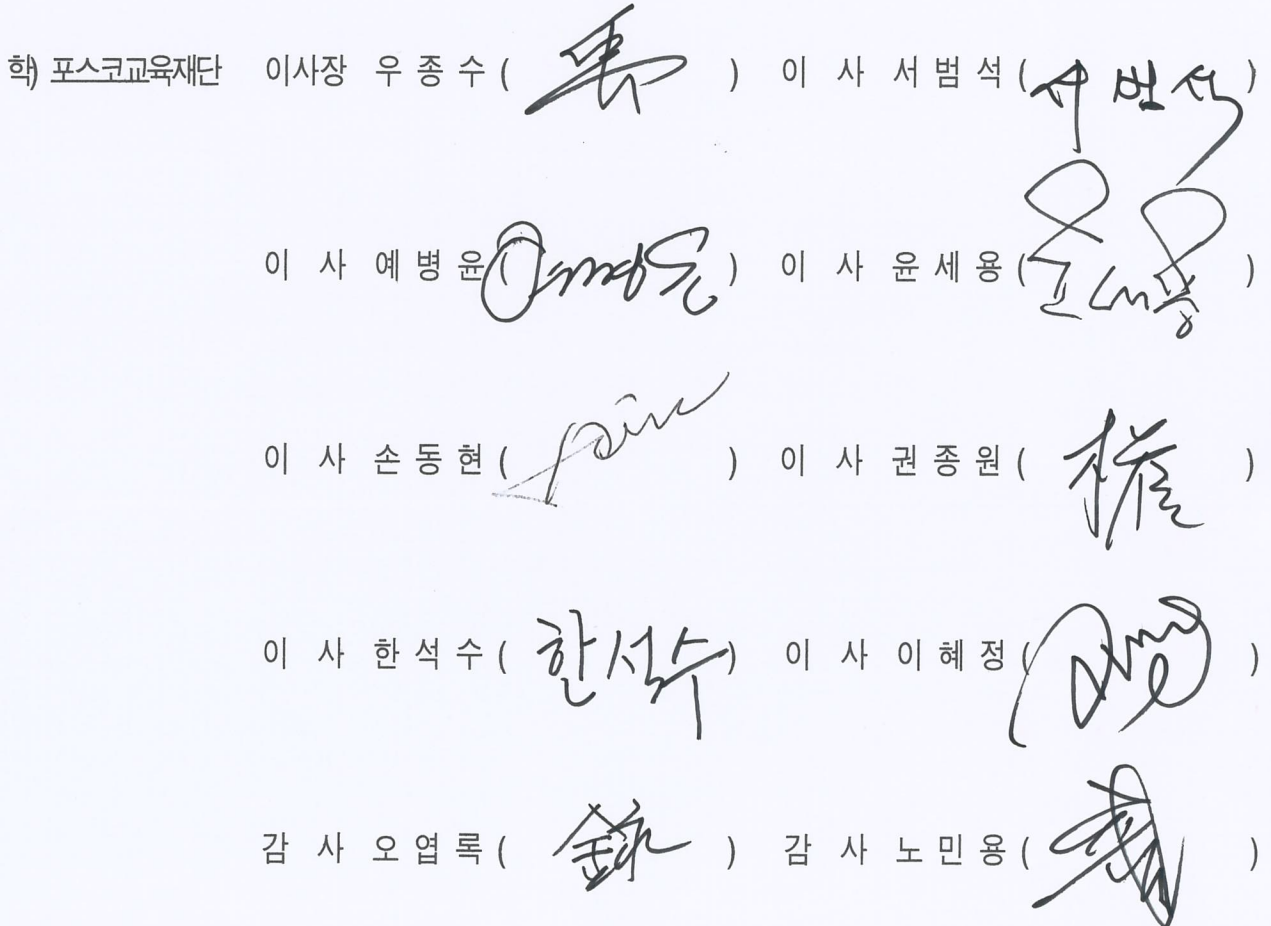 학) 포스코교육재단 이사장 우종수( ) 이 사 서범석(서범석)
이 사 예병윤( ) 이 사 윤세용(윤세용)
이 사 손동현( ) 이 사 권종원( )
이 사 한석수(한석수) 이 사 이혜정( )
감 사 오엽록( ) 감 사 노민용( )